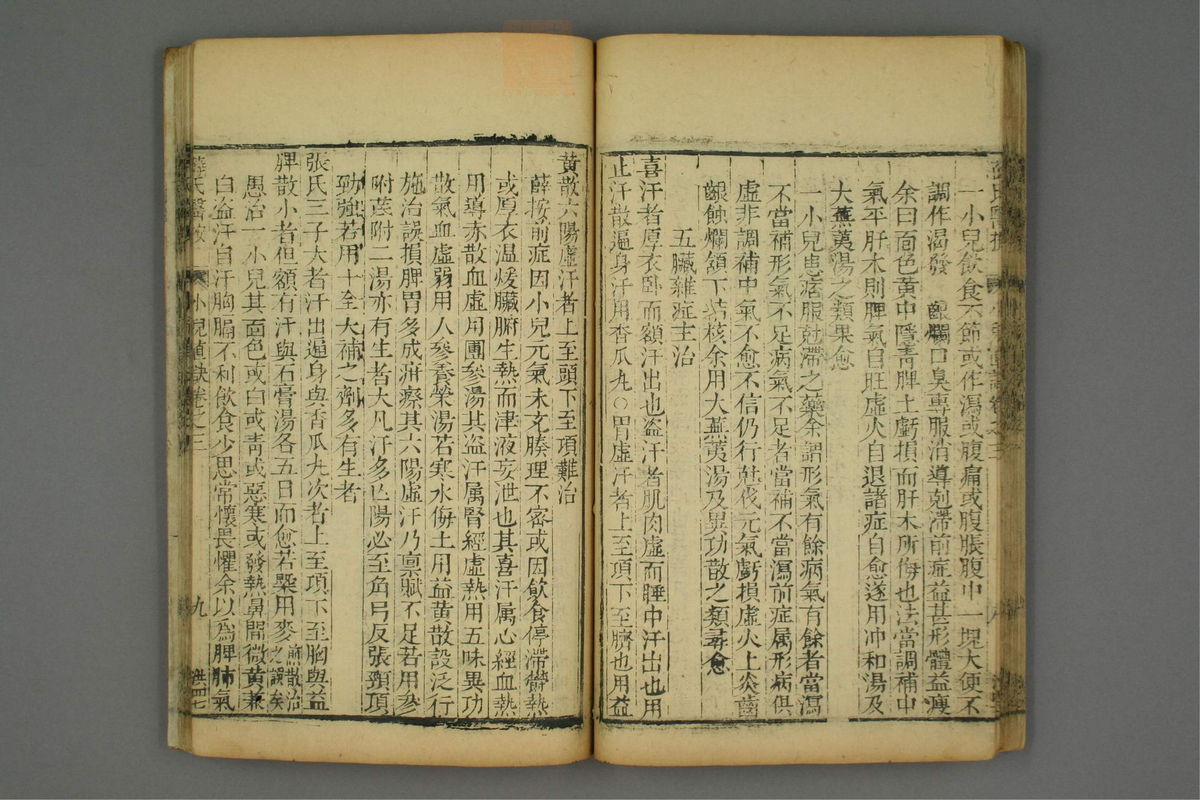 一小兒飲食不節或作瀉或腹痛或腹脹腹中一塊大便不
調作渴發 齦爛口臭專服消導尅滯前症益甚形體益瘦
余曰面色黃中隱靑脾土虧損而肝木所侮也法當調補中
氣平肝木則脾氣自旺虛火自退諸症自愈遂用冲和湯及
大蕪荑湯之類果愈
一小兒患痞服尅滯之藥余謂形氣有餘病氣有餘者當瀉
不當補形氣不足病氣不足者當補不當瀉前症属形病俱
虛非調補中氣不愈不信仍行尅伐元氣虧損虛火上炎齒
齦蝕爛頷下結核余用大蕪荑湯及異功散之類尋愈
五臟雜症主治
喜汗者厚衣卧而額汗出也盗汗者肌肉虛而睡中汗出也用
止汗散遍身汗用香瓜丸○胃虛汗者上至項下至臍也用益
黃散六陽虛汗者上至頭下至項難治
薛按前症因小兒元氣未充腠理不密或因飲食停滯欝熱
或厚衣温煖臟腑生熱而津液妄泄也其喜汗属心經血熱
用導赤散血虛用團參湯其盗汗属腎經虛熱用五味異功
散氣血虛弱用人參養榮湯若寒水侮土用益黃散設泛行
施治誤損脾胃多成疳瘵其六陽虛汗乃禀賦不足若用參
附茋附二湯亦有生者大凡汗多亡陽必至角弓反張頸項
勁強若用十全大補之劑多有生者
張氏三子大者汗出遍身與香瓜丸次者上至項下至胸與益
脾散小者但額有汗與石膏湯各五日而愈若槩用麥煎散治之誤矣
愚治一小兒其面色或白或靑或惡寒或發熱鼻間微黃兼
白盗汗自汗胸膈不利飲食少思常懷畏懼余以爲脾肺氣
薛氏醫按 小兒直訣卷之三 九